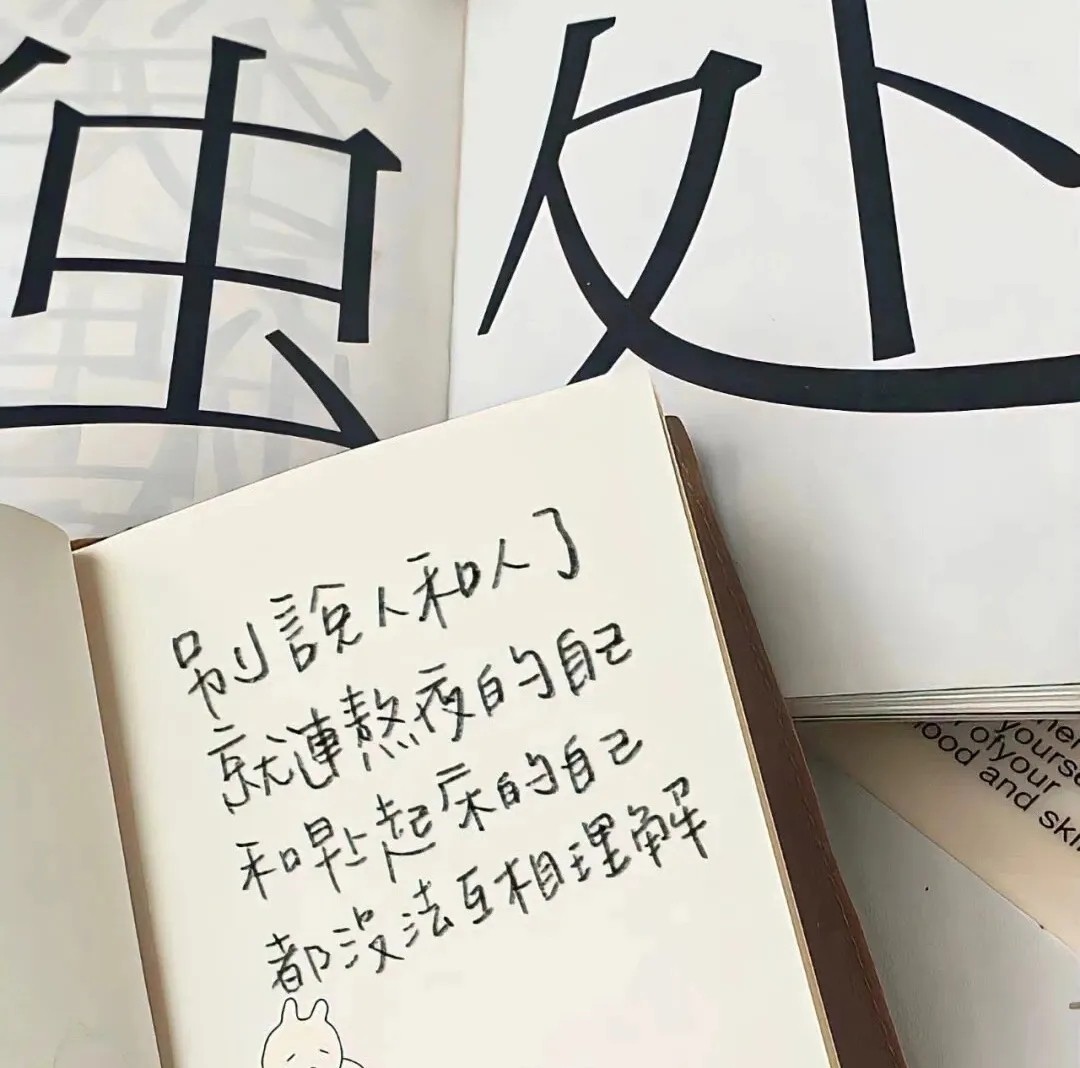 独处
別說人和人了
就連熬夜的自己
和早上起床的自己
都沒法互相理解
yourse
of your
food and skin